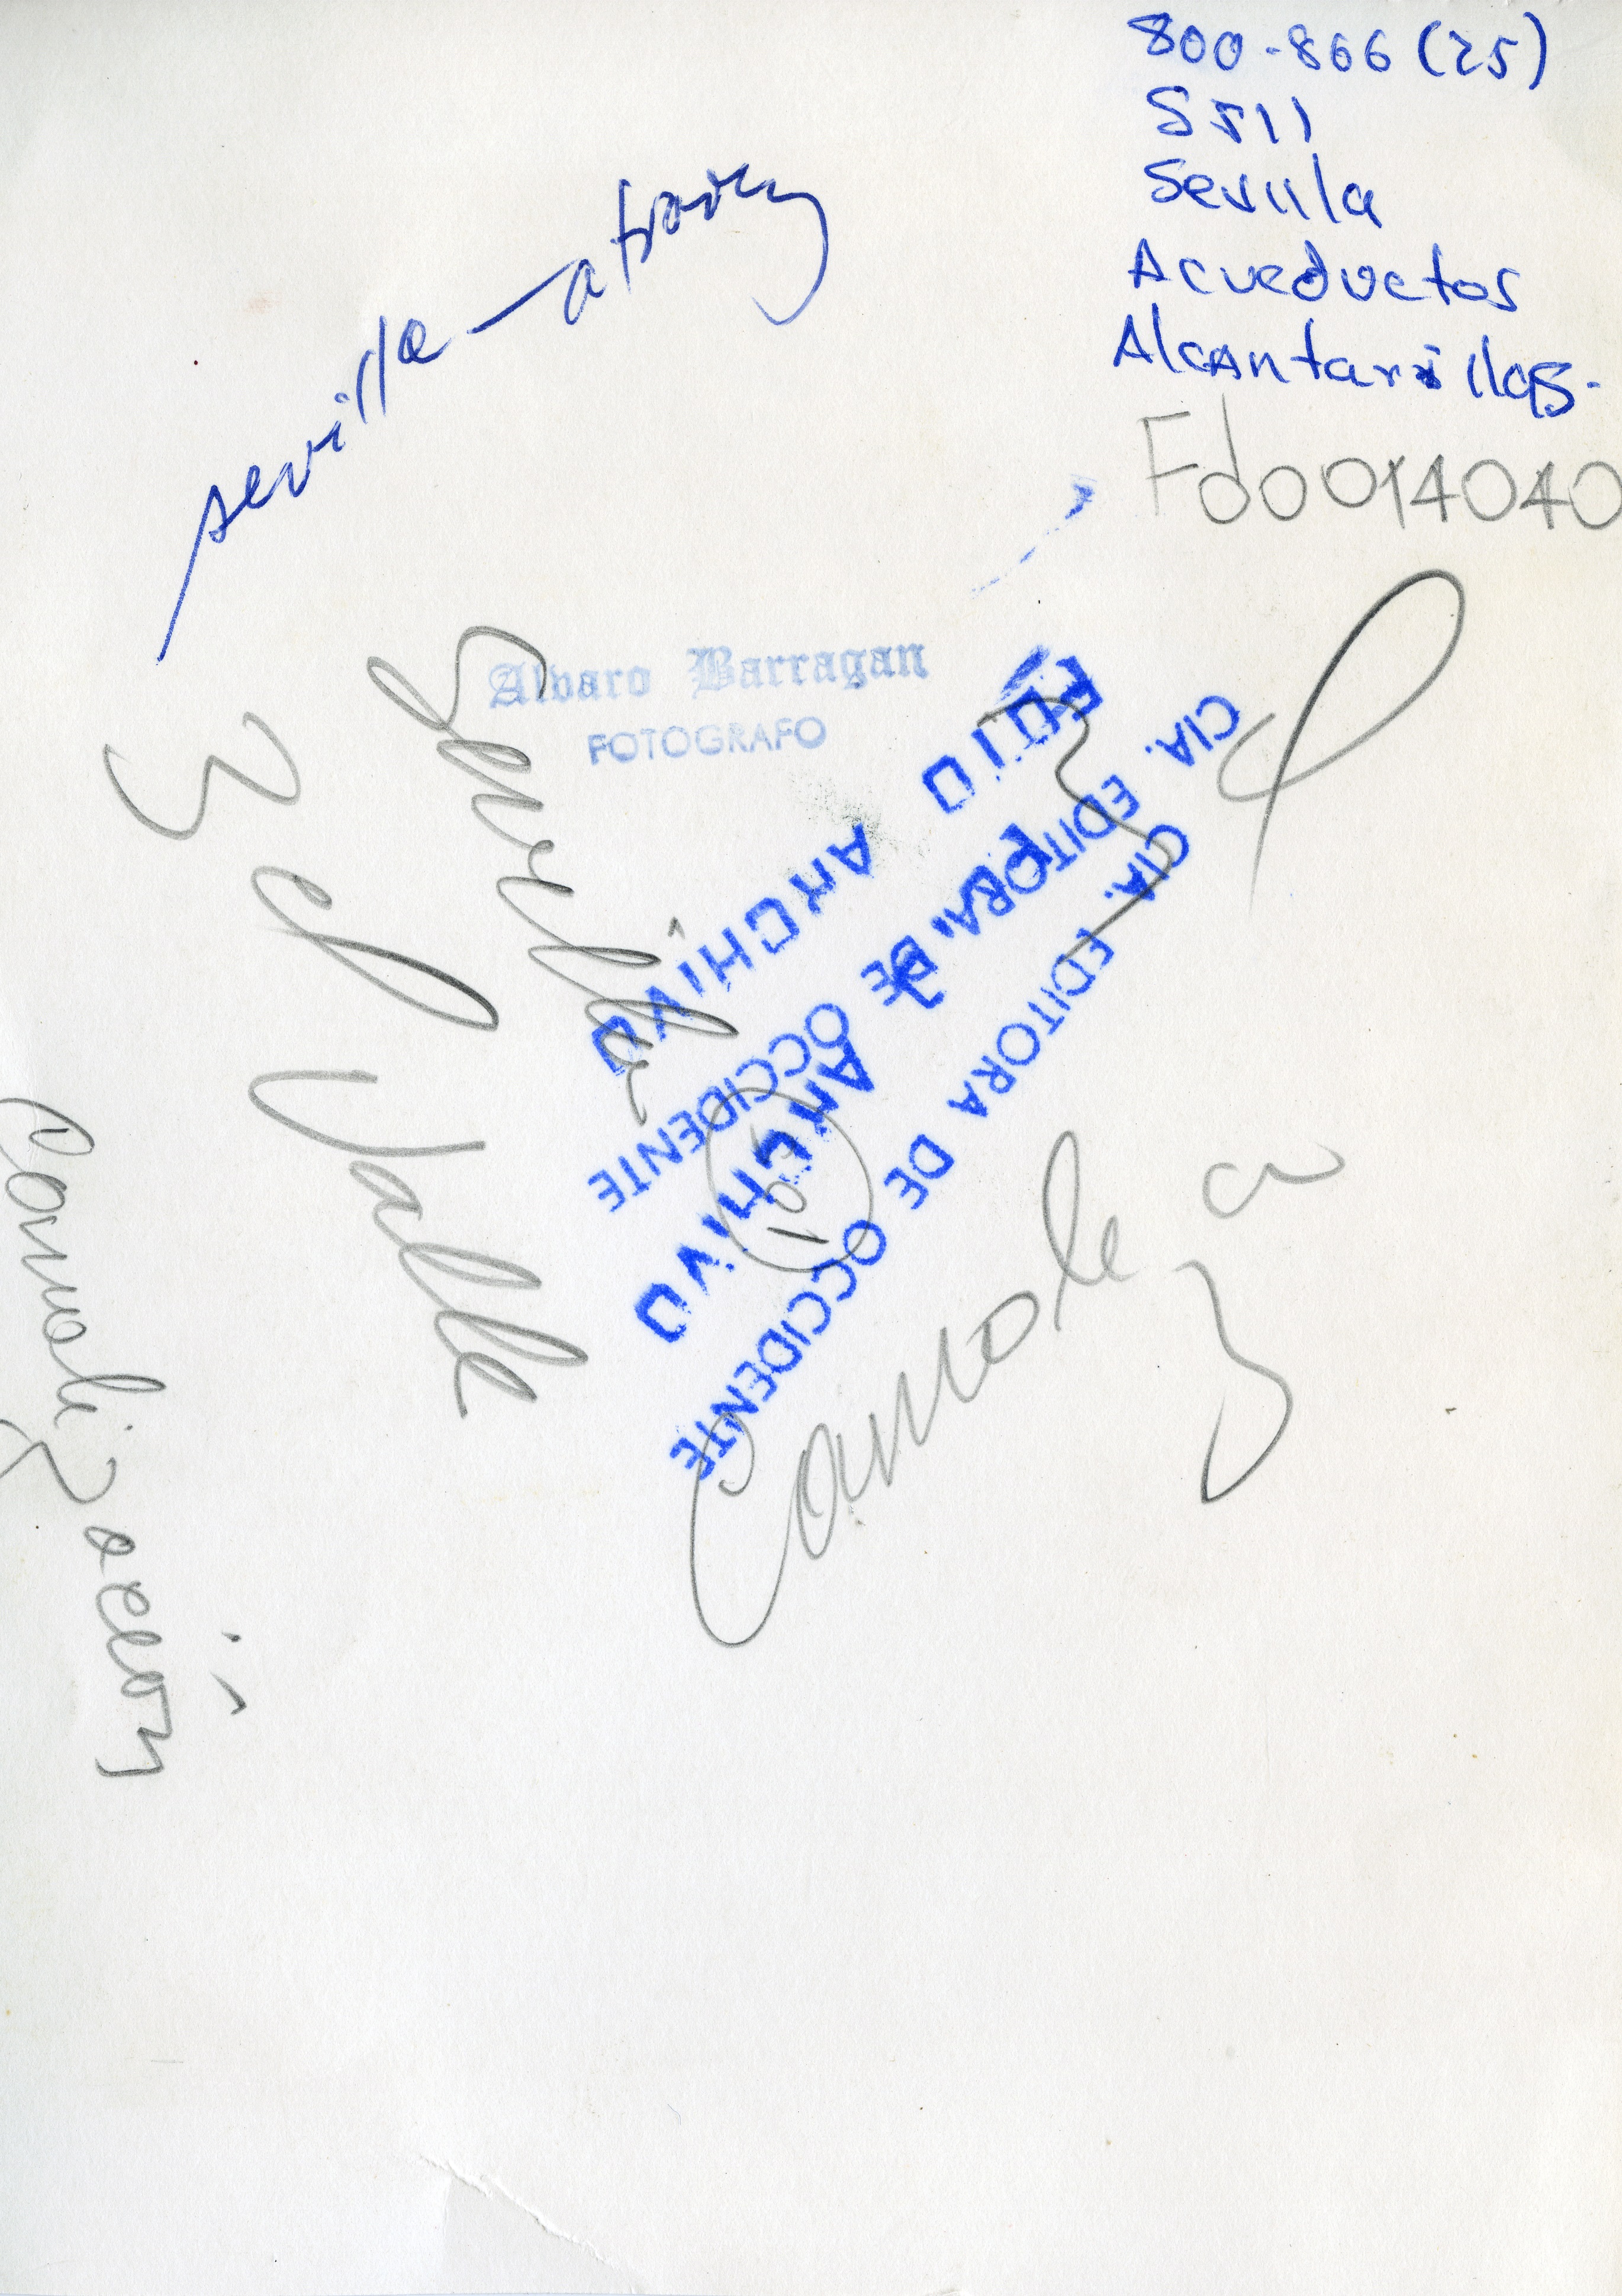 800-866 (25)
SS11
Sevilla
Acueductos
Alcantarillas.
Fd0014040
sevilla—
Alvaro Barragan
FOTOGRAFO
Sevilla
3 el Valle
Canalización
FOTO
ArCHiVO
CIA. EDITORA DE OCCIDENTE
ArCHiVO
CIA. EDITORA DE OCCIDENTE